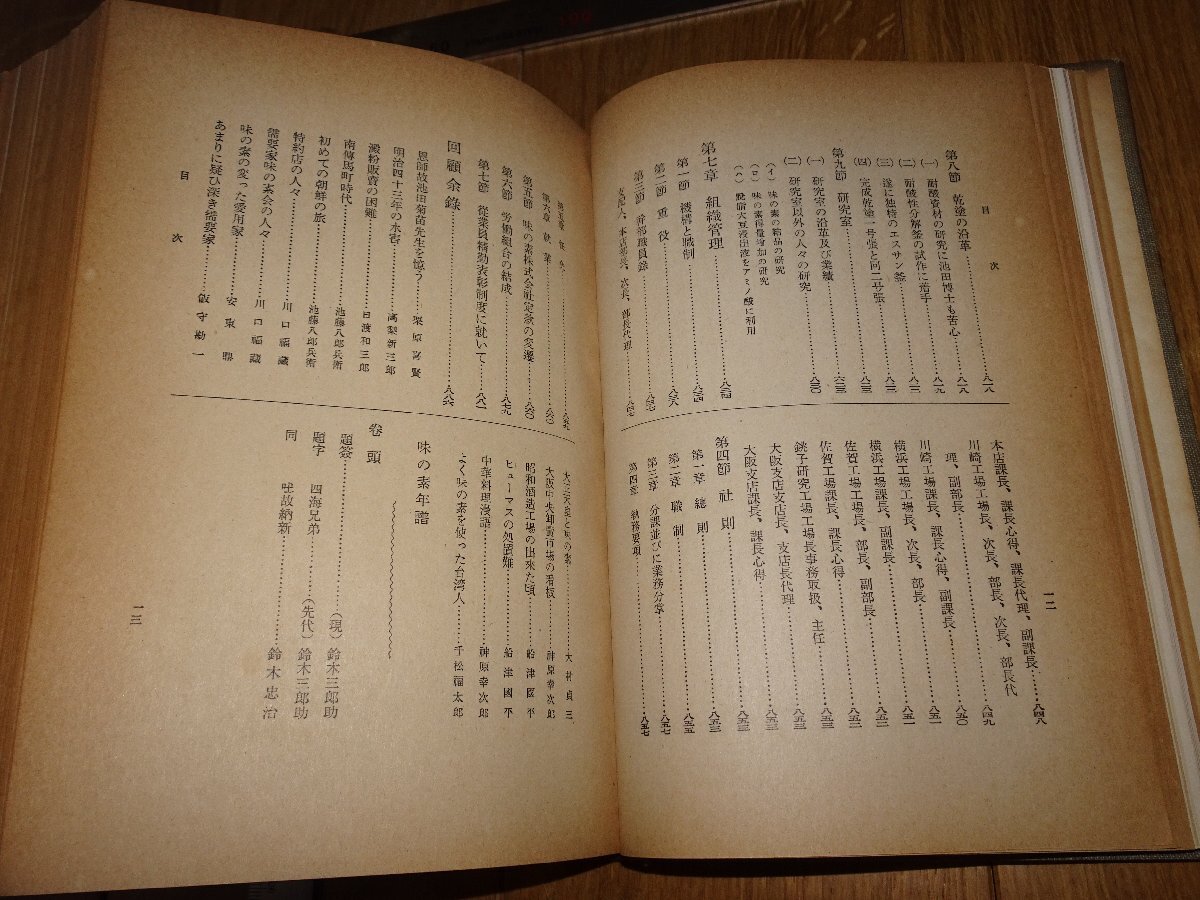 目次
第八節 乾塗の沿革……八一八
(一) 耐酸資材の研究に池田博士も苦心……八一八
(二) 耐酸性分解釜の試作に着手……八一九
(三) 遂に独特のエスサン釜……八二三
(四) 完成乾塗一号張と同二号張……八二三
第九節 研究室
(一) 研究室の沿革及び業績
(二) 研究室以外の人々の研究……八三〇
(イ) 味の素の結晶の研究
(ロ) 味の素得量増加の研究
(ハ) 脱脂大豆浸出液をアミノ酸に利用
第七章 組織管理……八三四
第一節 機構と職制……八三四
第二節 重役……八三八
第三節 幹部職員録……八四七
支配人、本店部長、次長、部長代理……八四七
本店課長、課長心得、課長代理、副課長……八四八
川崎工場工場長、次長、部長、次長、部長代理、副部長……八四九
川崎工場課長、課長心得、副課長……八五〇
横浜工場工場長、次長、部長……八五一
横浜工場課長、副課長……八五二
佐賀工場工場長、部長、副部長……八五二
佐賀工場課長、課長心得……八五三
銚子研究工場工場長事務取扱、主任……八五三
大阪支店支店長、支店長代理……八五三
大阪支店課長、課長心得……八五三
第四節 社則……八五三
第一章 總則……八五三
第二章 職制……八五五
第三章 分課並びに業務分掌……八五七
第四章 執務要項……八五七
一二
第五節 味の素株式会社定款の変遷……八六〇
第六節 労働組合の結成……八七九
第七節 従業員精勤表彰制度に就いて……八八一
回顧余錄……八八六
恩師故池田菊苗先生を憶う……栗原喜賢
明治四十三年の水害……高梨新三郎
澱粉販賣の困難……日渡和三郎
南傳馬町時代……池藤八郎兵衛
初めての朝鮮の旅……池藤八郎兵衛
特約店の人々……川口福藏
需要家味の素会の人々……川口福藏
味の素の変った愛用家……安東
あまりに疑び深き需要家……飯守勘一
目次
大村貞三
大阪中央卸賣市場の看板……神原幸次郎
昭和酒造工場の出来た頃……船津國平
ヒューマスの処置難……船津國平
中華料理漫語……神原幸次郎
よく味の素を使った台湾人……千松福太郎
味の素年譜
卷頭
題簽……(現) 鈴木三郎助
題字 四海兄弟……(先代) 鈴木三郎助
同 吐故納新……鈴木忠治
一三